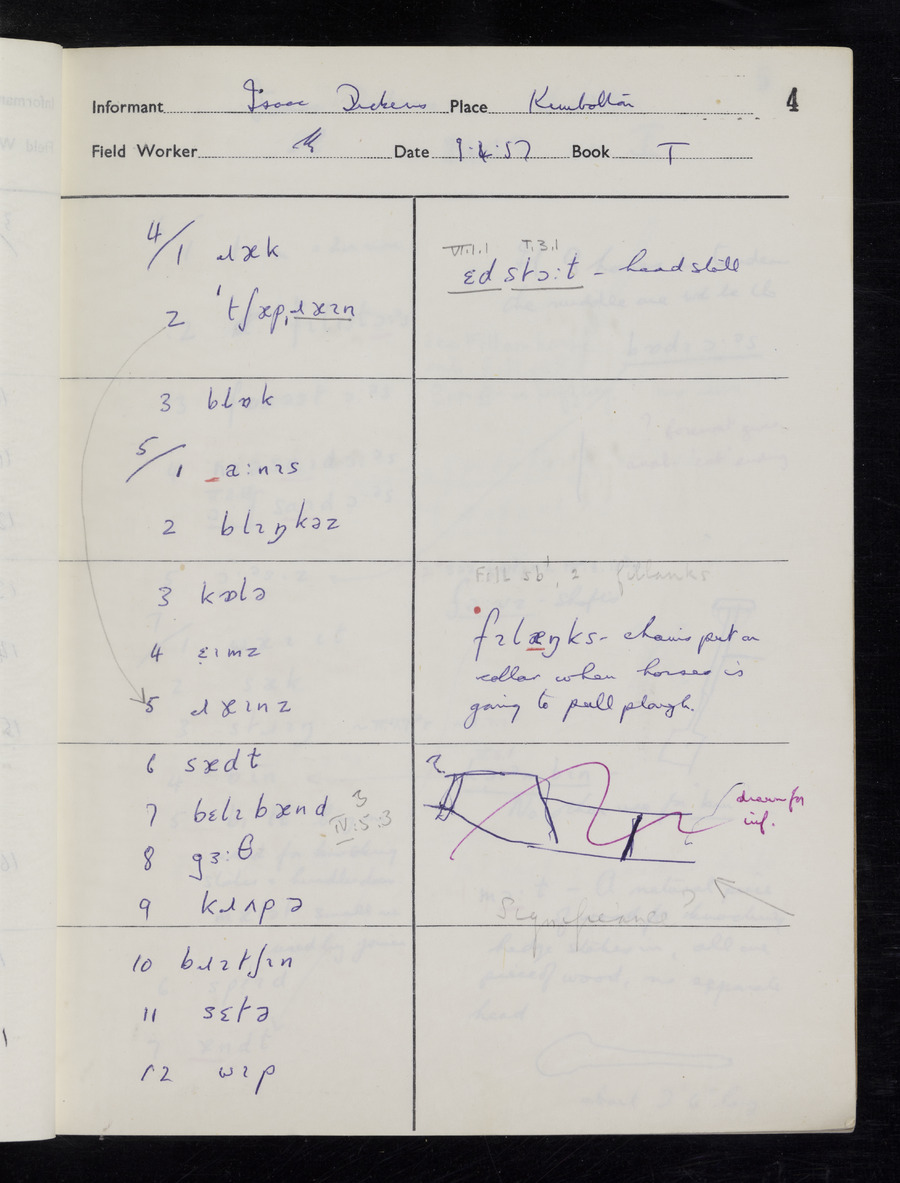 Informant Isaac Dickens Place Kimbolton 4
Field Worker Date 9.4.57 Book I
4/1 ɹæk
2 ˈtʃæpˌɹæɪn
VI.1.1 I.3.1
ɛd stɔ:t - head stall
3 blɒk
5/1 a:nɪs
2 blɪŋkəz
3 kɒlə
4 ɛɪmz
5 ɹæɪnz
fɪlæŋks - chains put on
collar when horses is
going to pull plough.
6 sædt
7 bɛlɪbænd 3
IV:5:3
8 gɜ:θ
9 kɹʌpə
drawn for
inf.
Significance?
10 bɹɪtʃɪn
11 sɛtə
12 wɪp